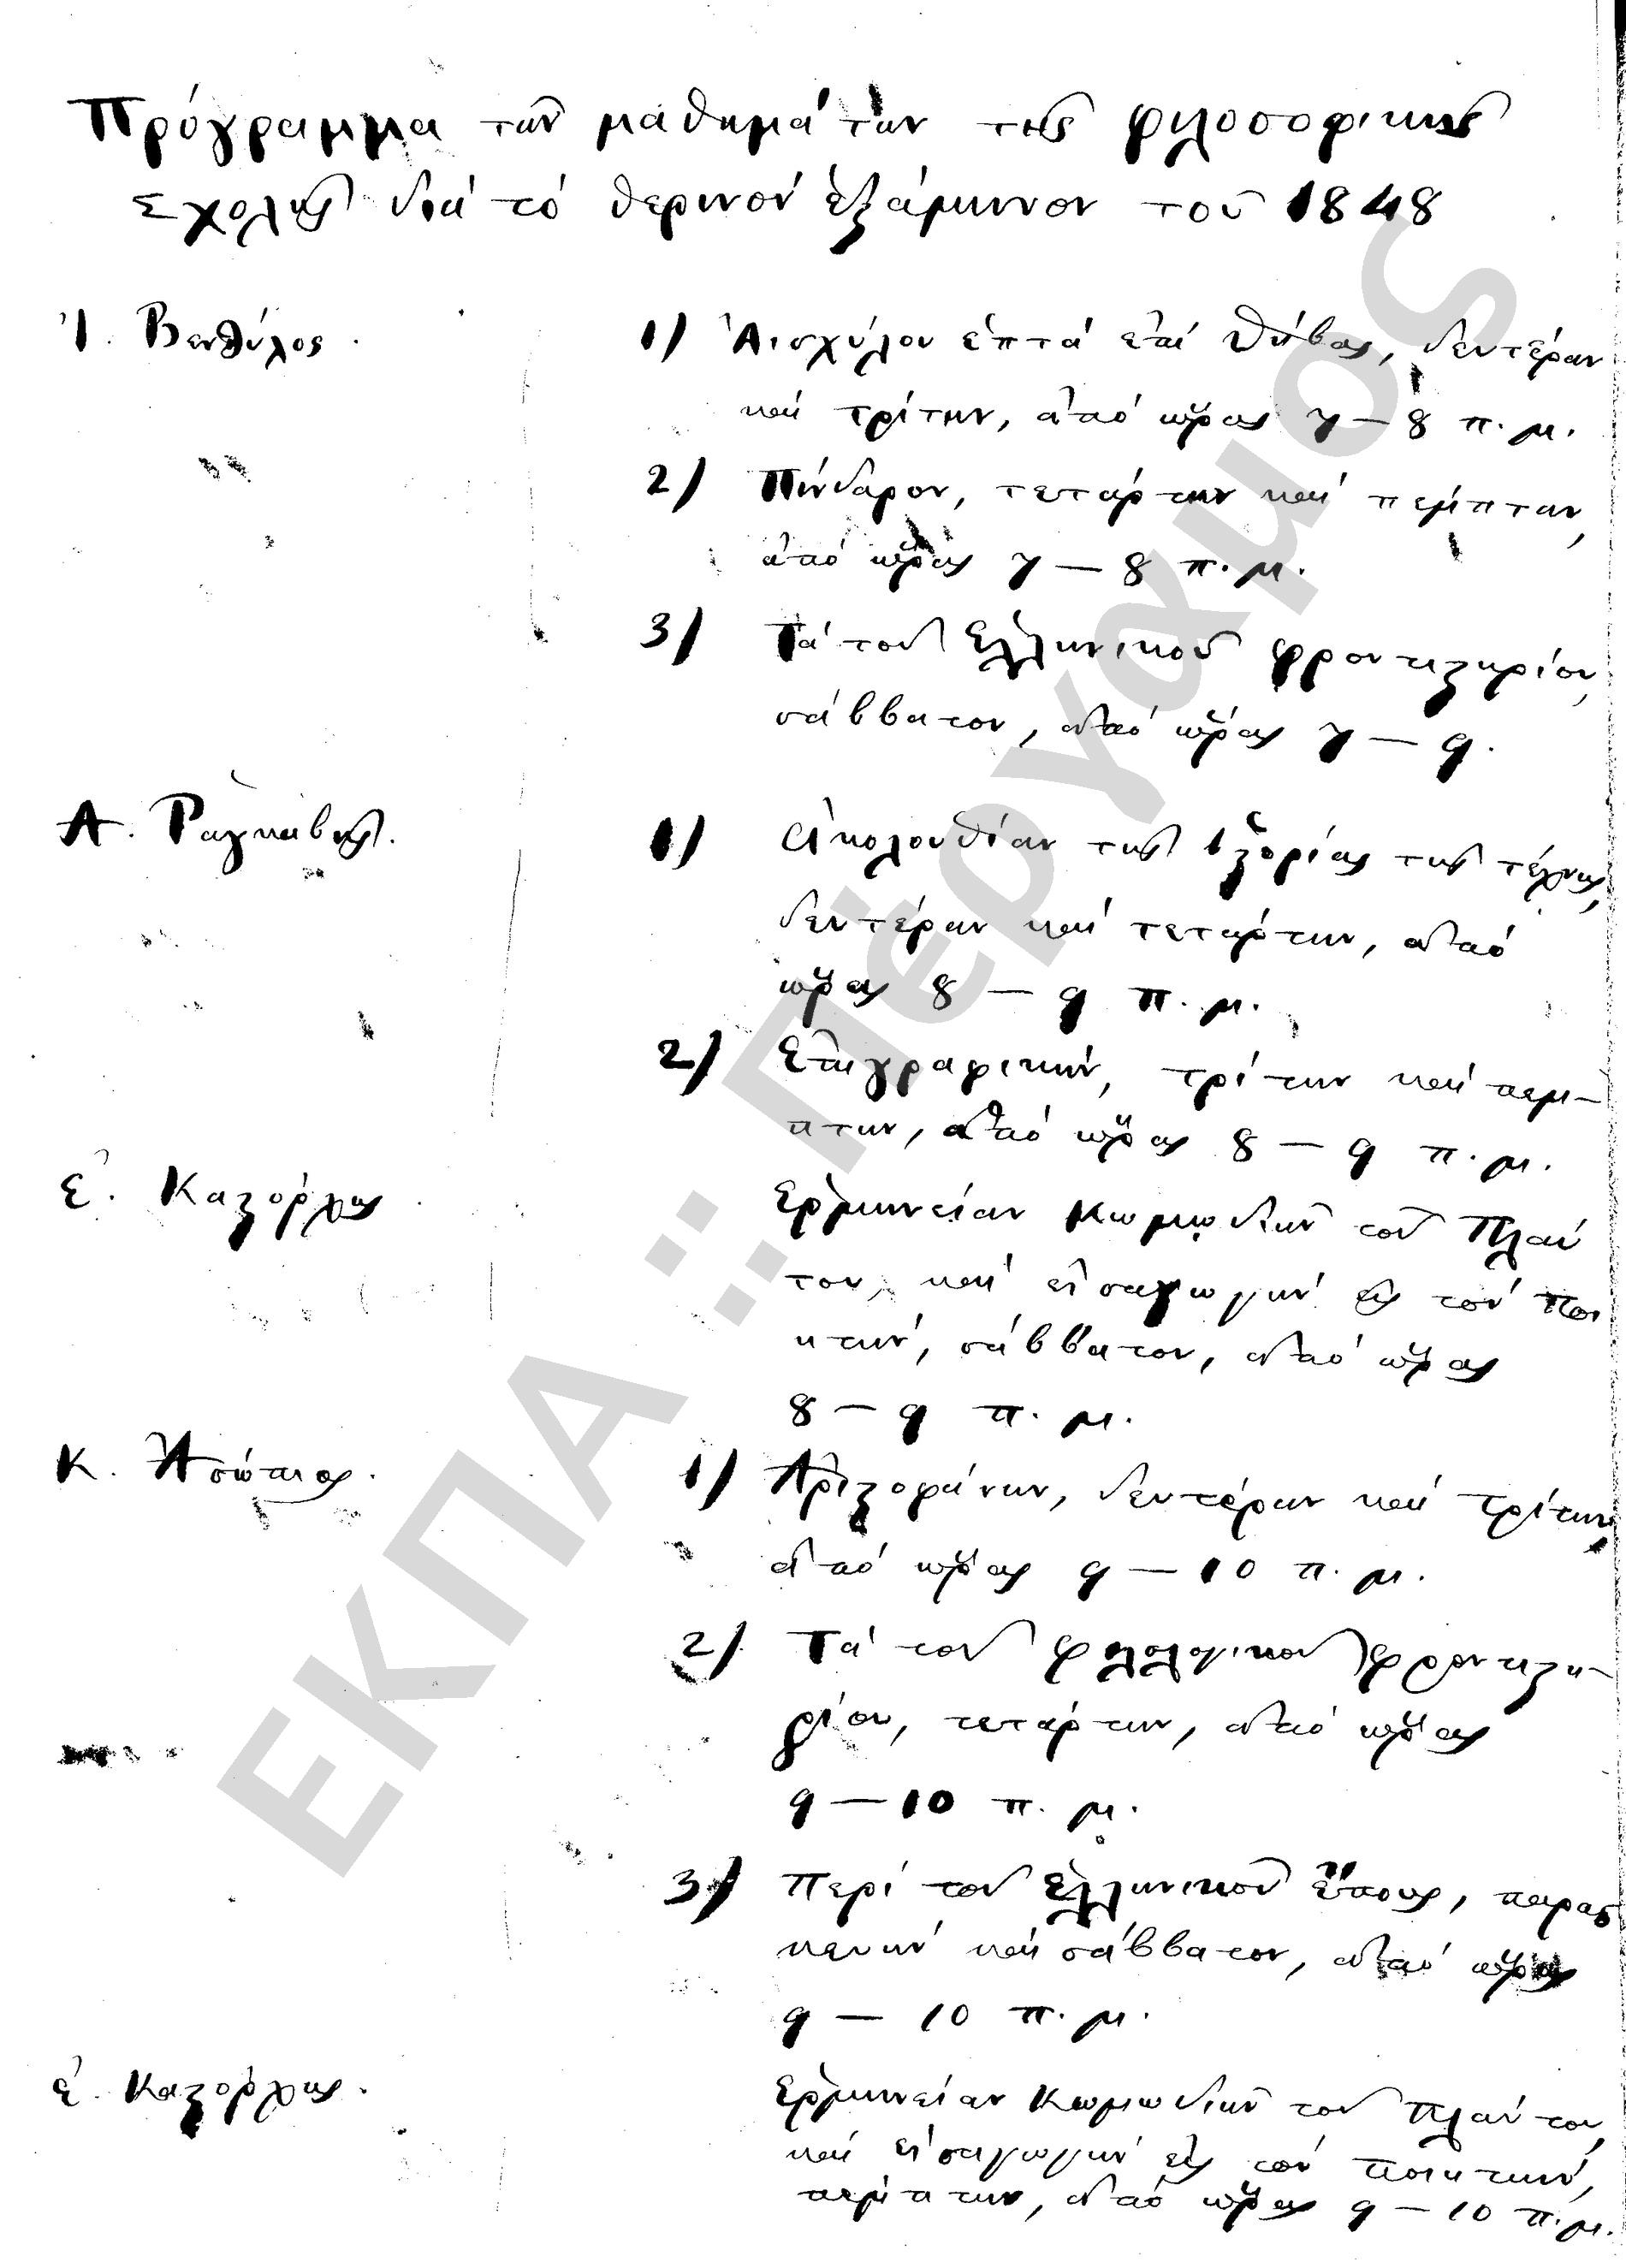 Πρόγραμμα τῶν μαθημάτων τῆς φιλοσοφικῆς
Σχολῆς διά τό θερινόν ἑξάμηνον τοῦ 1848
Ἰ. Βενθύλος.
1) Αἰσχύλου ἑπτά ἐπί Θήβας, δευτέραν
καί τρίτην, ἀπό ὥρας 7 – 8 π. μ.
2) Πίνδαρον, τετάρτην καί πέμπτην,
ἀπό ὥρας 7 – 8 π. μ.
3) Τά τοῦ Ἑλληνικοῦ φροντιϛηρίου,
σάββατον, ἀπό ὥρας 7 – 9.
Α. Ῥαγκαβῆς.
1) Ἀκολουθίαν τῆς ἱϛορίας τῆς τέχνης,
δευτέραν καί τετάρτην, ἀπό
ὥρας 8 – 9 π. μ.
2) Ἐπιγραφικήν, τρίτην καί πέμ-
πτην, ἀπό ὥρας 8 – 9 π. μ.
Ἐ. Καϛόρχης.
Ἑρμηνείαν Κωμῳδιῶν τοῦ Πλαύ
του, καί εἰσαγωγήν εἰς τόν ποι
ητήν, σάββατον, ἀπό ὥρας
8 – 9 π. μ.
Κ. Ἀσώπιος.
1) Ἀριϛοφάνην, δευτέραν καί τρίτην,
ἀπό ὥρας 9 – 10 π. μ.
2) Τά τοῦ φιλολογικοῦ φροντιϛη-
ρίου, τετάρτην, ἀπό ὥρας
9 – 10 π. μ.
3) Περί τοῦ Ἑλληνικοῦ ἔπους, παρασ
κευήν καί σάββατον, ἀπό ὥρας
9 – 10 π. μ.
Ἐ. Καϛόρχης.
Ἑρμηνείαν Κωμῳδιῶν τοῦ Πλαύτου,
καί εἰσαγωγήν εἰς τόν ποιητήν,
πέμπτην, ἀπό ὥρας 9 – 10 π. μ.
ΕΚΠΑ :: Πέργαμος